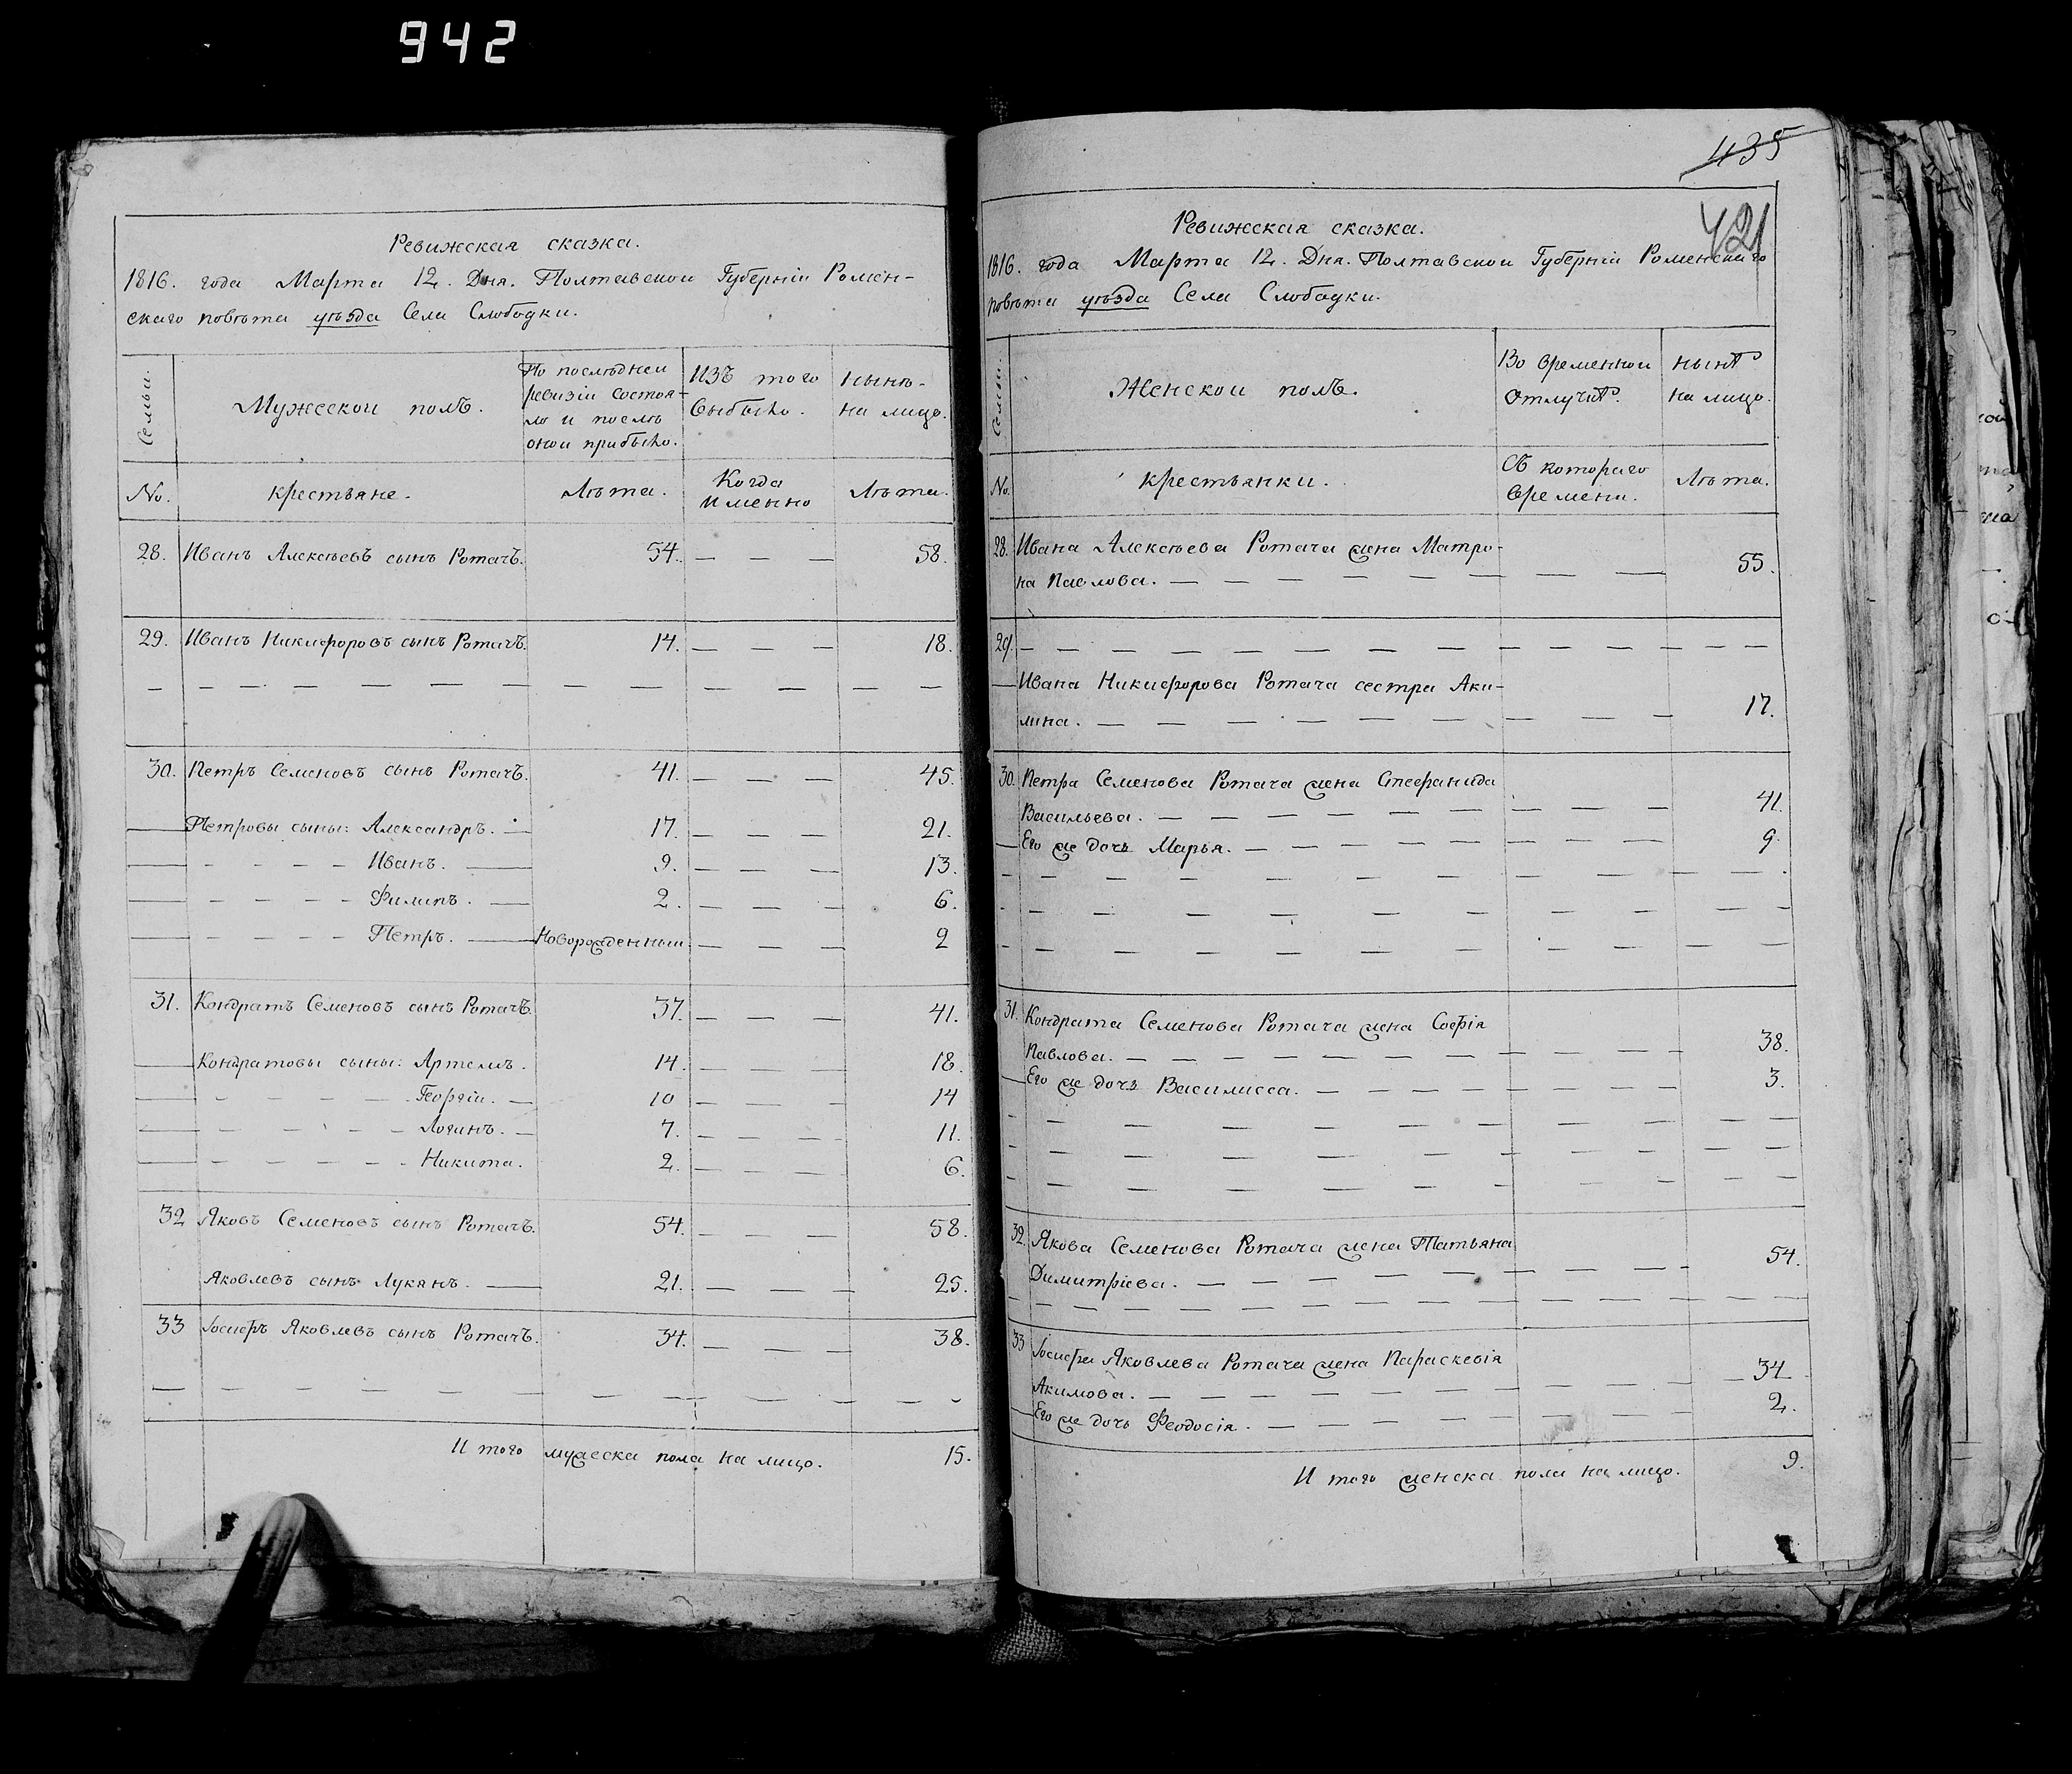 942
Ревижская сказка.
1816. года Марта 12. Дня. Полтавскои Губерніи Ромен-
скаго повѣта уѣзда Села Слободки.
Семьи.
Мужескои полъ.
По послѣднеи
ревизіи состоя-
ло и послѣ
онои прибыло.
Изъ того
выбыло.
нынѣ-
на лицо.
No.
крестьяне.
Лѣта.
Когда
именно
Лѣта.
28. Иванъ Алексѣевъ сынъ Ротачъ. 54. — — — 58.
29. Иванъ Никифоровъ сынъ Ротачъ. 14. — — — 18.
30. Петръ Семеновъ сынъ Ротачъ. 41. — — — 45.
Петровы сыны: Александръ. — 17. — — — 21.
— — — — Иванъ. — 9. — — — 13.
— — — — Филипъ. — 2. — — — 6.
— — — — Петръ. — Новорожденныи — — — 2
31. Кондратъ Семеновъ сынъ Ротачъ. 37. — — — 41.
Кондратовы сыны: Артемъ. 14. — — — 18.
— — — — Георгіи. — 10 — — — 14
— — — — Логинъ. — 7. — — — 11.
— — — — Никита. 2. — — — 6.
32 Яковъ Семеновъ сынъ Ротачъ. 54. — — — 58.
Яковлевъ сынъ Лукянъ. — 21. — — — 25.
33 Іосифъ Яковлевъ сынъ Ротачъ. 34. — — — 38.
И того мужеска пола на лицо. 15.
435
421
Ревижская сказка.
1816. года Марта 12. Дня. Полтавскои Губерніи Роменскаго
повѣта уѣзда Села Слободки.
Семьи.
Женскои полъ.
Во временнои
отлучкѣ.
нынѣ
на лицо.
No.
крестьянки.
Съ котораго
времени.
Лѣта.
28. Ивана Алексѣева Ротача жена Матро-
на Павлова. — — — 55.
29. — — —
Ивана Никифорова Ротача сестра Аку-
лина. — — — 17.
30. Петра Семенова Ротача жена Стефанида
Васильева. — — — 41.
Его же дочь Марья. — — — 9.
31. Кондрата Семенова Ротача жена Софія
Павлова. — — — 38.
Его же дочь Василисса. — — — 3.
32. Якова Семенова Ротача жена Татьяна
Димитріева. — — — 54.
33 Іосифа Яковлева Ротача жена Параскевія
Акимова. — — — 34
Его же дочь Феодосія. — — — 2.
И того женска пола на лицо. 9.